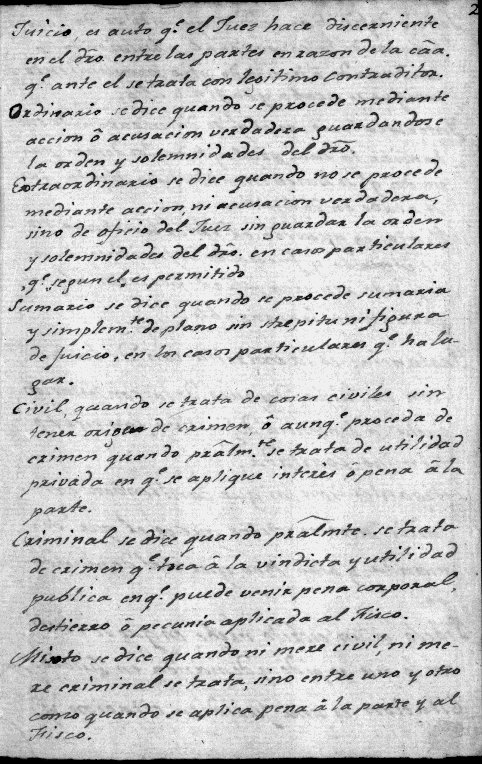 2
Juicio, es auto q.e el Juez hace discerniente
en el dro. entre las partes en razon de la cãa.
q.e ante el se trata con legitimo Contraditor.
Ordinario se dice quando se procede mediante
accion ô acusacion verdadera guardandose
la orden y solemnidades del dro.
Extraordinario se dice quando no se procede
mediante accion, ni acusacion verdadera,
sino de oficio del Juez, sin guardar la orden
y solemnidades del dro. en casos particulares
q.e segun el, es permitido
Sumario se dice quando se procede sumaria
y simplem.te de plano sin strepitu ni figura
de Juicio, en los casos particulares q.e ha lu-
gar.
Civil, quando se trata de cosas civiles sin
tener origen de crimen, ô aunq.e proceda de
crimen quando prãlm.te se trata de utilidad
privada en q.e se aplique interès ô pena â la
parte.
Criminal se dice quando prãlmte. se trata
de crimen q.e toca â la vindicta y utilidad
publica en q.e puede venir pena corporal,
destierro ô pecunia aplicada al Fisco.
Misto se dice quando ni mere civil, ni me-
re criminal se trata, sino entre uno y otro
como quando se aplica pena â la parte y al
Fisco.